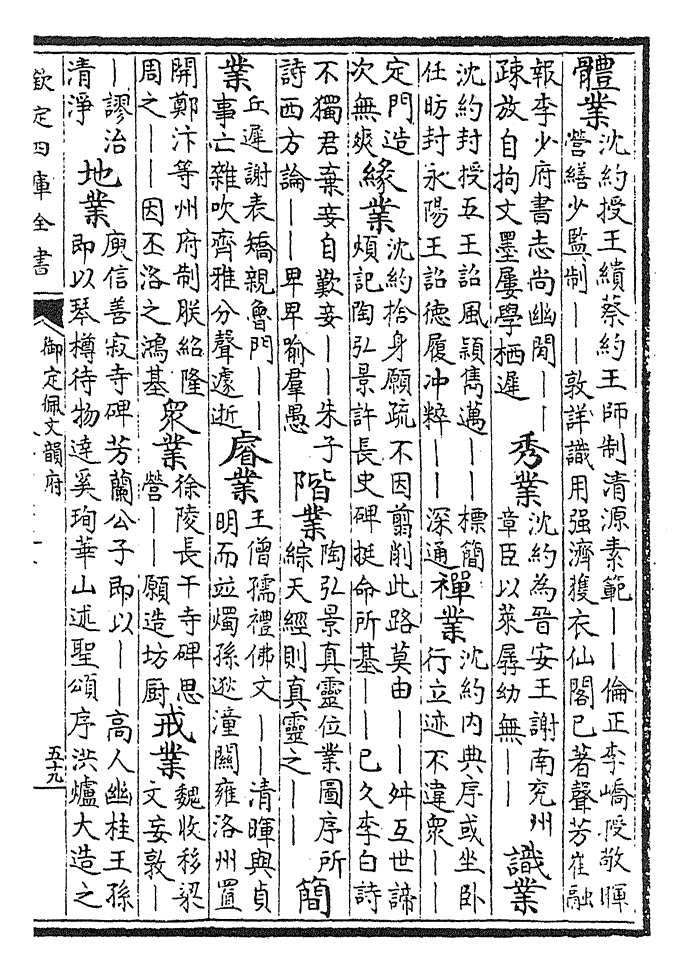 體業沈約授王纘蔡約王師制清源素範——倫正李嶠授敬暉
營繕少監制——敦詳識用强濟獲衣仙閣已著聲芳崔融
報李少府書志尚幽閑——
疎放自拘文墨屢學栖遲
秀業沈約為晉安王謝南兖州
章臣以萊孱幼無——
識業
沈約封授五王詔風頴雋邁——標簡
任昉封永陽王詔德履冲粹——深通
禪業沈約內典序或坐卧
行立迹不違衆——
定門造
次無爽
緣業沈約捨身願疏不因翦削此路莫由——舛互世諦
煩記陶弘景許長史碑挺命所基——已久李白詩
不獨君棄妾自歎妾——朱子
詩西方論——卑卑喻羣愚
階業陶弘景真靈位業圖序所
綜天經則真靈之——
簡
業丘遲謝表矯親魯門——
事亡雜吹齊雅分聲遽逝
睿業王僧孺禮佛文——清暉與貞
明而竝燭孫逖潼關雍洛州置
開鄭汴等州府制朕紹隆
周之——因丕洛之鴻基
衆業徐陵長干寺碑思
營——願造坊厨
戒業魏收移梁
文妄敦—
—謬治
清淨
地業庾信善寂寺碑芳蘭公子即以——高人幽桂王孫
即以琴樽待物達奚珣華山述聖頌序洪爐大造之
欽定四庫全書
御定佩文韻府
五十九